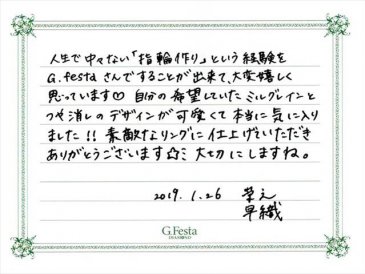 人生で中々ない「指輪作り」という経験を
G.festaさんですることが出来て、大変嬉しく
思っています♡ 自分の希望していたミルグレインと
つや消しのデザインが可愛くて本当に気に入り
ました!! 素敵なリングに仕上げていただき
ありがとうございます☆ミ 大切にしますね。
2019.1.26
早織
G.Festa
DIAMOND